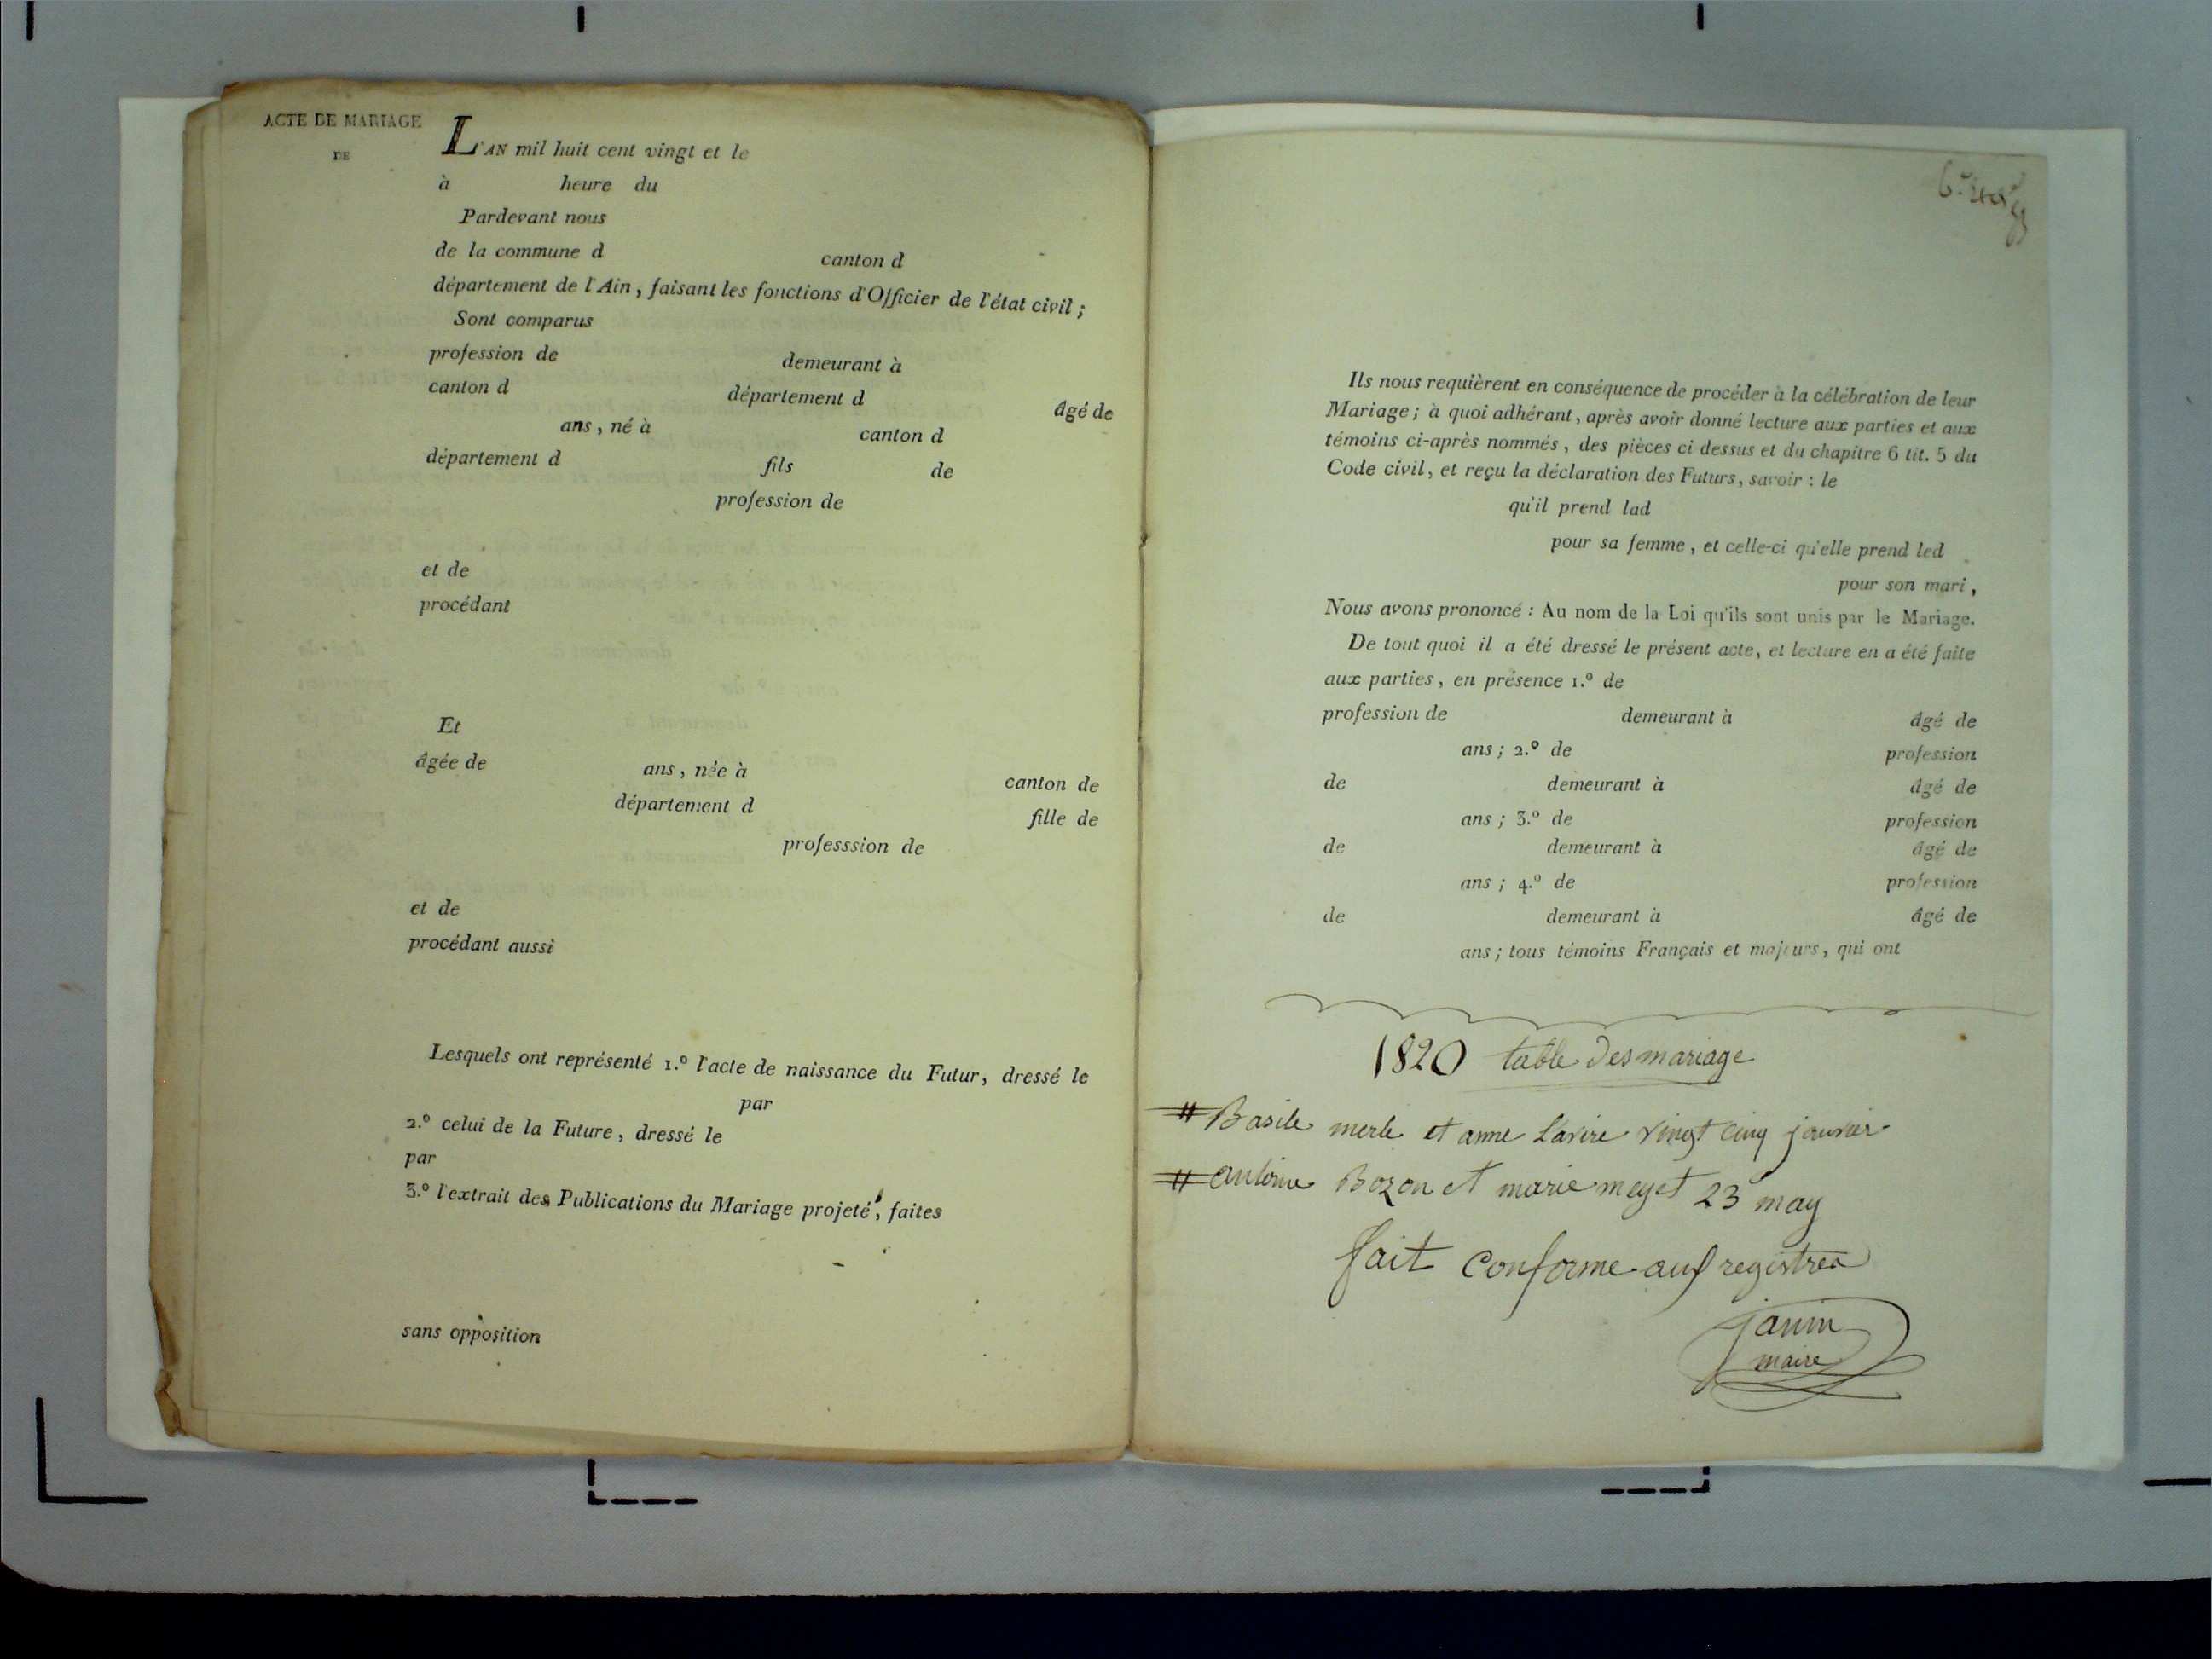 ACTE DE MARIAGE
DE
L'AN mil huit cent vingt et le
à heure du
Pardevant nous
de la commune d canton d
département de l'Ain, faisant les fonctions d'Officier de l'état civil;
Sont comparus
profession de demeurant à
canton d département d âgé de
ans, né à canton d
département d fils de
profession de
et de
procédant
Et
âgée de ans, née à canton de
département d fille de
professsion de
et de
procédant aussi
Lesquels ont représenté 1.º l'acte de naissance du Futur, dressé le
par
2.º celui de la Future, dressé le
par
3.º l'extrait des Publications du Mariage projeté, faites
sans opposition
Ils nous requièrent en conséquence de procéder à la célébration de leur
Mariage; à quoi adhérant, après avoir donné lecture aux parties et aux
témoins ci-après nommés, des pièces ci dessus et du chapitre 6 tit. 5 du
Code civil, et reçu la déclaration des Futurs, savoir : le
qu'il prend lad
pour sa femme, et celle-ci qu'elle prend led
pour son mari,
Nous avons prononcé : Au nom de la Loi qu'ils sont unis par le Mariage.
De tout quoi il a été dressé le présent acte, et lecture en a été faite
aux parties, en présence 1.º de
profession de demeurant à âgé de
ans; 2.º de profession
de demeurant à âgé de
ans; 3.º de profession
de demeurant à âgé de
ans; 4.º de profession
de demeurant à âgé de
ans; tous témoins Français et majeurs, qui ont
1820 table Des mariage
Basile merle et anne Lavire vingt cinq janvier
antoine Bozon et marie meyet 23 may
fait conforme aux registres
janin
maire